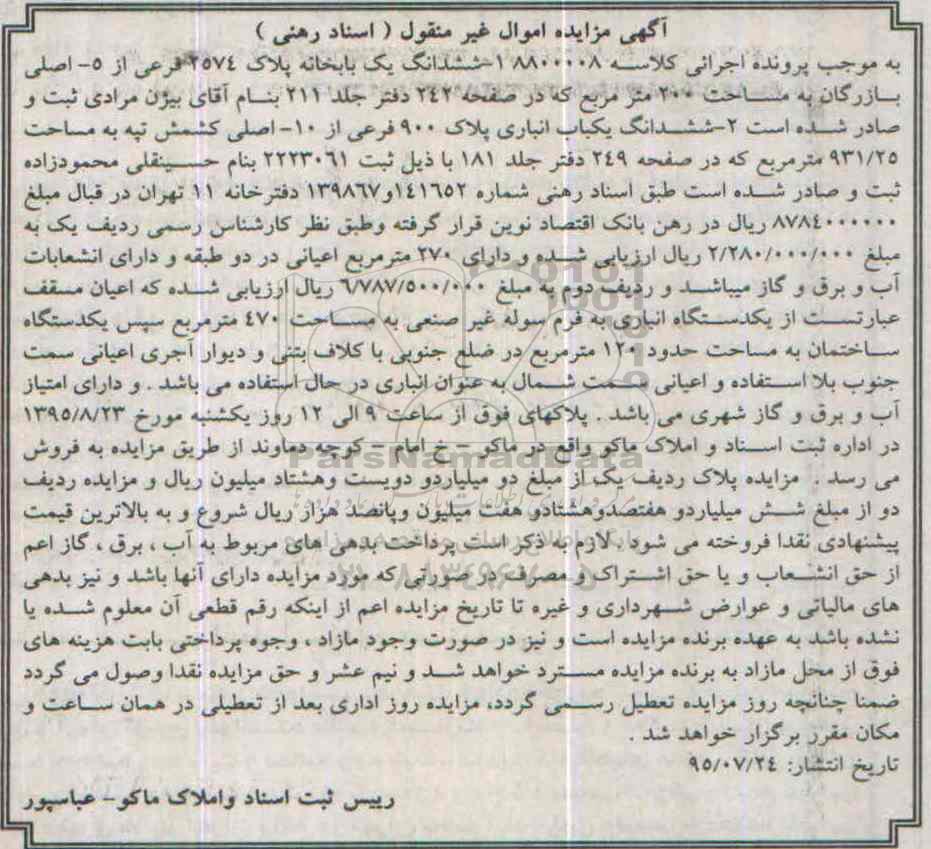 آگهی مزایده اموال غیر منقول ( اسناد رهنی )
به موجب پرونده اجرائی کلاسه ۸۸۰۰۰۰۸ ۱-ششدانگ یک بابخانه پلاک ۲۵۷۴ فرعی از ۵- اصلی
بازرگان به مساحت ۲۰۰ متر مربع که در صفحه ۲۴۲ دفتر جلد ۲۱۱ بنام آقای بیژن مرادی ثبت و
صادر شده است ۲-ششدانگ یکباب انباری پلاک ۹۰۰ فرعی از ۱۰- اصلی کشمش تپه به مساحت
۹۳۱/۲۵ مترمربع که در صفحه ۲۴۹ دفتر جلد ۱۸۱ با ذیل ثبت ۲۲۲۳۰۶۱ بنام حسینقلی محمودزاده
ثبت و صادر شده است طبق اسناد رهنی شماره ۱۴۱۶۵۲و۱۳۹۸۶۷ دفترخانه ۱۱ تهران در قبال مبلغ
۸۷۸۴۰۰۰۰۰۰ ریال در رهن بانک اقتصاد نوین قرار گرفته وطبق نظر کارشناس رسمی ردیف یک به
مبلغ ۲/۲۸۰/۰۰۰/۰۰۰ ریال ارزیابی شده و دارای ۲۷۰ مترمربع اعیانی در دو طبقه و دارای انشعابات
آب و برق و گاز میباشد و ردیف دوم به مبلغ ۶/۷۸۷/۵۰۰/۰۰۰ ریال ارزیابی شده که اعیان مسقف
عبارتست از یکدستگاه انباری به فرم سوله غیر صنعی به مساحت ۴۷۰ مترمربع سپس یکدستگاه
ساختمان به مساحت حدود ۱۲۰ مترمربع در ضلع جنوبی با کلاف بتنی و دیوار آجری اعیانی سمت
جنوب بلا استفاده و اعیانی سمت شمال به عنوان انباری در حال استفاده می باشد . و دارای امتیاز
آب و برق و گاز شهری می باشد . پلاکهای فوق از ساعت ۹ الی ۱۲ روز یکشنبه مورخ ۱۳۹۵/۸/۲۳
در اداره ثبت اسناد و املاک ماکو واقع در ماکو - خ امام - کوچه دماوند از طریق مزایده به فروش
می رسد . مزایده پلاک ردیف یک از مبلغ دو میلیاردو دویست وهشتاد میلیون ریال و مزایده ردیف
دو از مبلغ شش میلیاردو هفتصدوهشتادو هفت میلیون وپانصد هزار ریال شروع و به بالاترین قیمت
پیشنهادی نقدا فروخته می شود . لازم به ذکر است پرداخت بدهی های مربوط به آب ، برق ، گاز اعم
از حق انشعاب و یا حق اشتراک و مصرف در صورتی که مورد مزایده دارای آنها باشد و نیز بدهی
های مالیاتی و عوارض شهرداری و غیره تا تاریخ مزایده اعم از اینکه رقم قطعی آن معلوم شده یا
نشده باشد به عهده برنده مزایده است و نیز در صورت وجود مازاد ، وجوه پرداختی بابت هزینه های
فوق از محل مازاد به برنده مزایده مسترد خواهد شد و نیم عشر و حق مزایده نقدا وصول می گردد
ضمنا چنانچه روز مزایده تعطیل رسمی گردد، مزایده روز اداری بعد از تعطیلی در همان ساعت و
مکان مقرر برگزار خواهد شد .
تاریخ انتشار: ۹۵/۰۷/۲۴
رییس ثبت اسناد واملاک ماکو- عباسپور
ParsNamadData